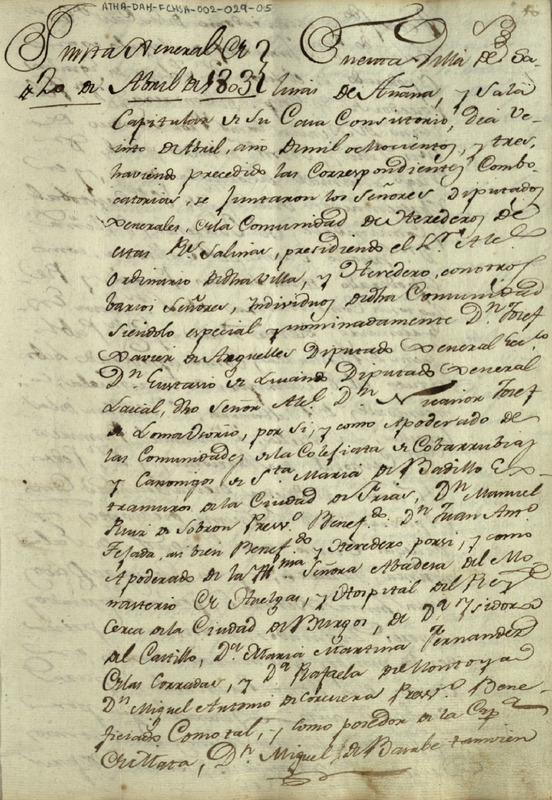 ATHA-DAH-FCHSA-002-029-05
Junta General de
20 de Abril de 1803
En esta Villa de Sa-
linas de Añana, y Sala
Capitular de su Casa Consistorio, dia ve-
inte de Abril, año de mil ochocientos, y tres,
haviendo precedido las Correspondientes Combo-
catorias, se juntaron los Señores Diputados
Generales, de la Comunidad de Herederos de
estas Rs. Salinas, presidiendo el Sr. Ale.
Ordinario de dha Villa, y Heredero, con otros
barios Señores, Individuos de dha Comunidad
siendolo especial y nominadamente Dn. Josef
Xavier de Arguelles Diputado General
Dn. Eustasio de Diputado General
dho Señor Ale. Dn. Nicanor Josef
de Loma Osorio, por si, y como Apoderado de
las Comunidades de la Colegiata de Cobarrubias
y Canonigos de Sta. Maria de Badillo Ex-
tramuros de la Ciudad de Frias, Dn. Manuel
Ruiz de Sobron Presvo. Benefdo. Dn. Juan Anto.
Tejada, asi bien Benefdo. y Heredero por si, y como
Apoderado de la Illma. Señora Abadesa del Mo-
nasterio de Huelgas, y Hospital del Rey
cerca de la Ciudad de Burgos, de Da. Ysidora
del Castillo, Da. Maria Martina Fernandez
de las Corradas, y Da. Rafaela de Montoya
Dn. Miguel Antonio de Corcuera Presvo. Bene-
ficiado Como tal, y como posedor de la Cap.a
de Dn. Miguel de Barabe tamvien